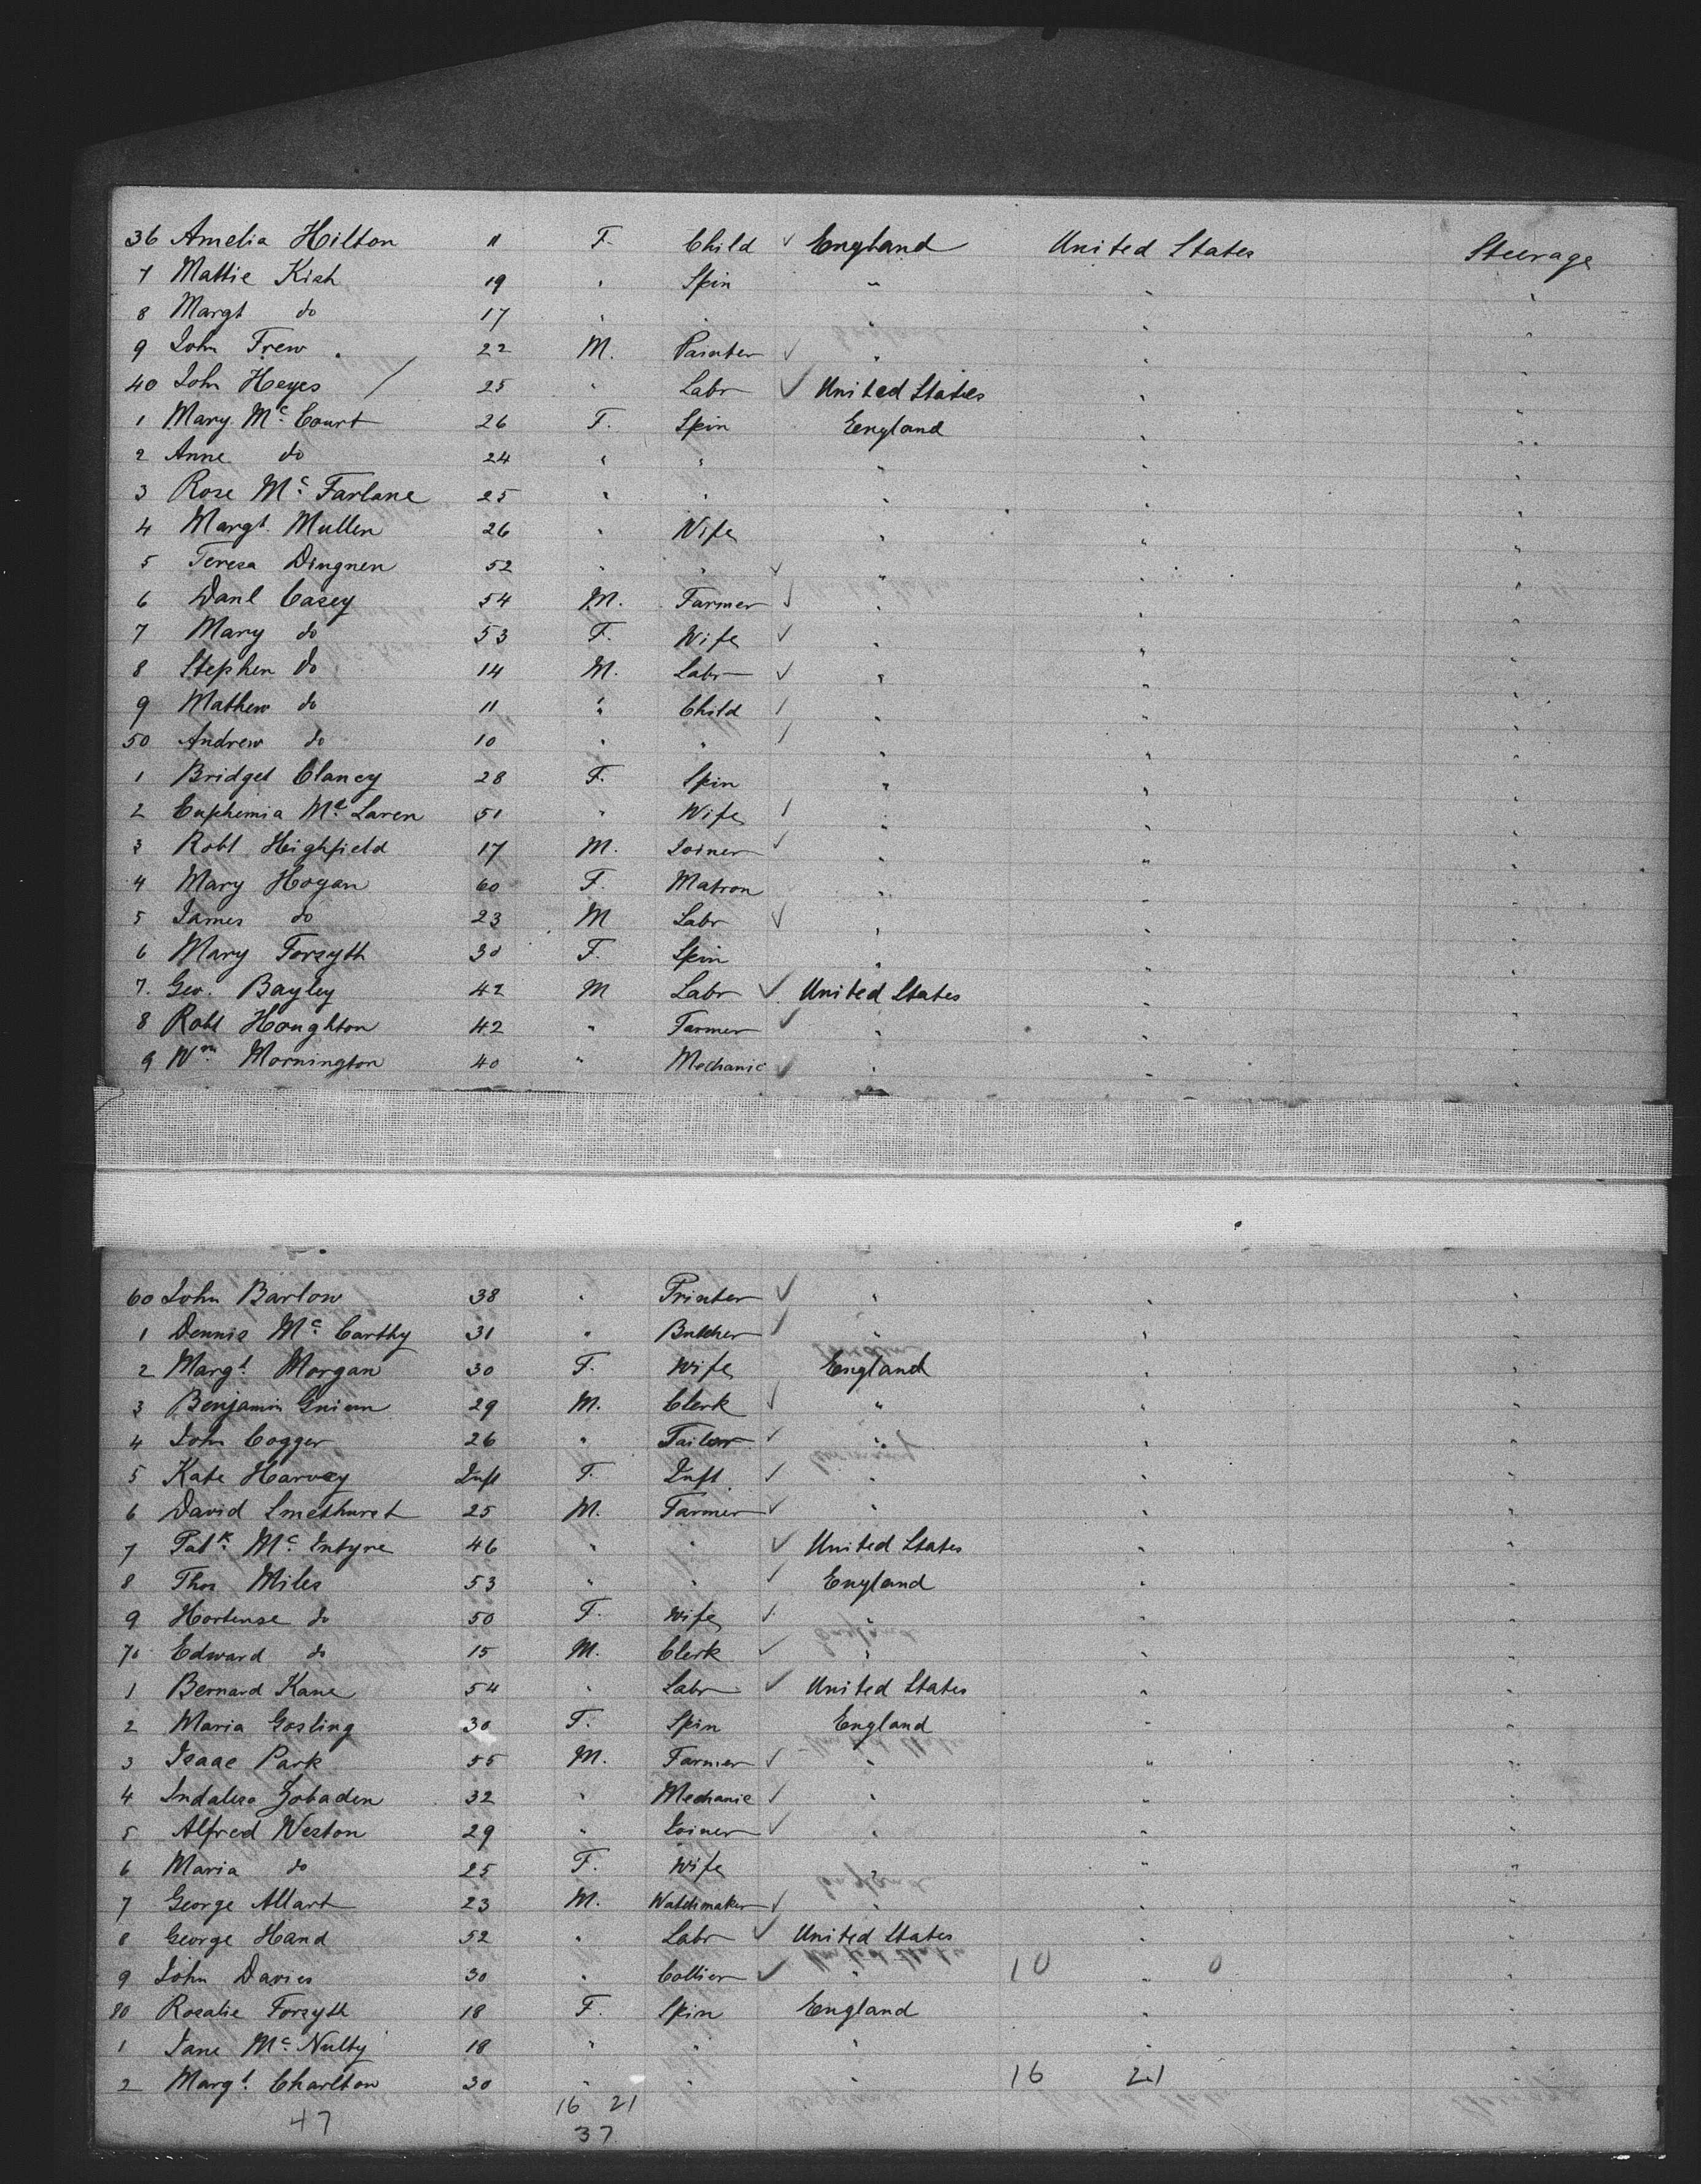 36 Amelia Hilton 11 F. Child ✓ England United States Steerage
7 Mattie Kish 19 " Spin " " "
8 Margt do 17 " " " " "
9 John Frew 22 M. Painter ✓ " " "
40 John Heyes / 25 " Labr ✓ United States " "
1 Mary McCourt 26 F. Spin England " "
2 Anne do 24 " " " " "
3 Rose McFarlane 25 " " " " "
4 Margt. Mullen 26 " Wife " " "
5 Teresa Dingnen 52 " " ✓ " " "
6 Danl Casey 54 M. Farmer ✓ " " "
7 Mary do 53 F. Wife ✓ " " "
8 Stephen do 14 M. Labr ✓ " " "
9 Mathew do 11 " Child / " " "
50 Andrew do 10 " " / " " "
1 Bridget Clancy 28 F. Spin " " "
2 Euphemia McLaren 51 " Wife / " " "
3 Robt Highfield 17 M. Joiner ✓ " " "
4 Mary Hogan 60 F. Matron " " "
5 James do 23 M Labr ✓ " " "
6 Mary Forsyth 30 F. Spin " " "
7. Geo. Bayley 42 M Labr ✓ United States " "
8 Robt Houghton 42 " Farmer ✓ " " "
9 Wm. Mornington 40 " Mechanic ✓ " " "
60 John Barlow 38 " Printer ✓ " " "
1 Dennis McCarthy 31 " Butcher ✓ " " "
2 Margt. Morgan 30 F. Wife England " "
3 Benjamin 29 M. Clerk ✓ " " "
4 John Cogger 26 " Tailor ✓ " " "
5 Kate Harvey Inft F. Inft ✓ " " "
6 David Smethurst 25 M. Farmer ✓ " " "
7 Patk. McEntyre 46 " " ✓ United States " "
8 Thos Miles 53 " " ✓ England " "
9 Hortense do 50 F. Wife ✓ " " "
70 Edward do 15 M. Clerk ✓ " " "
1 Bernard Kane 54 " Labr ✓ United States " "
2 Maria Gosling 30 F. Spin England " "
3 Isaac Park 55 M. Farmer ✓ " " "
4 32 " Mechanic ✓ " " "
5 Alfred Weston 29 " Joiner ✓ " " "
6 Maria do 25 F. Wife " " "
7 George Allart 23 M. Watchmaker ✓ " " "
8 George Hand 52 " Labr ✓ United States " "
9 John Davies 30 " Collier ✓ " 10 " 0 "
80 Rosalie Forsyth 18 F. Spin England " "
1 Jane McNulty 18 " " " " "
2 Margt. Charlton 30 " " " 16 21 "
47 16 21
37